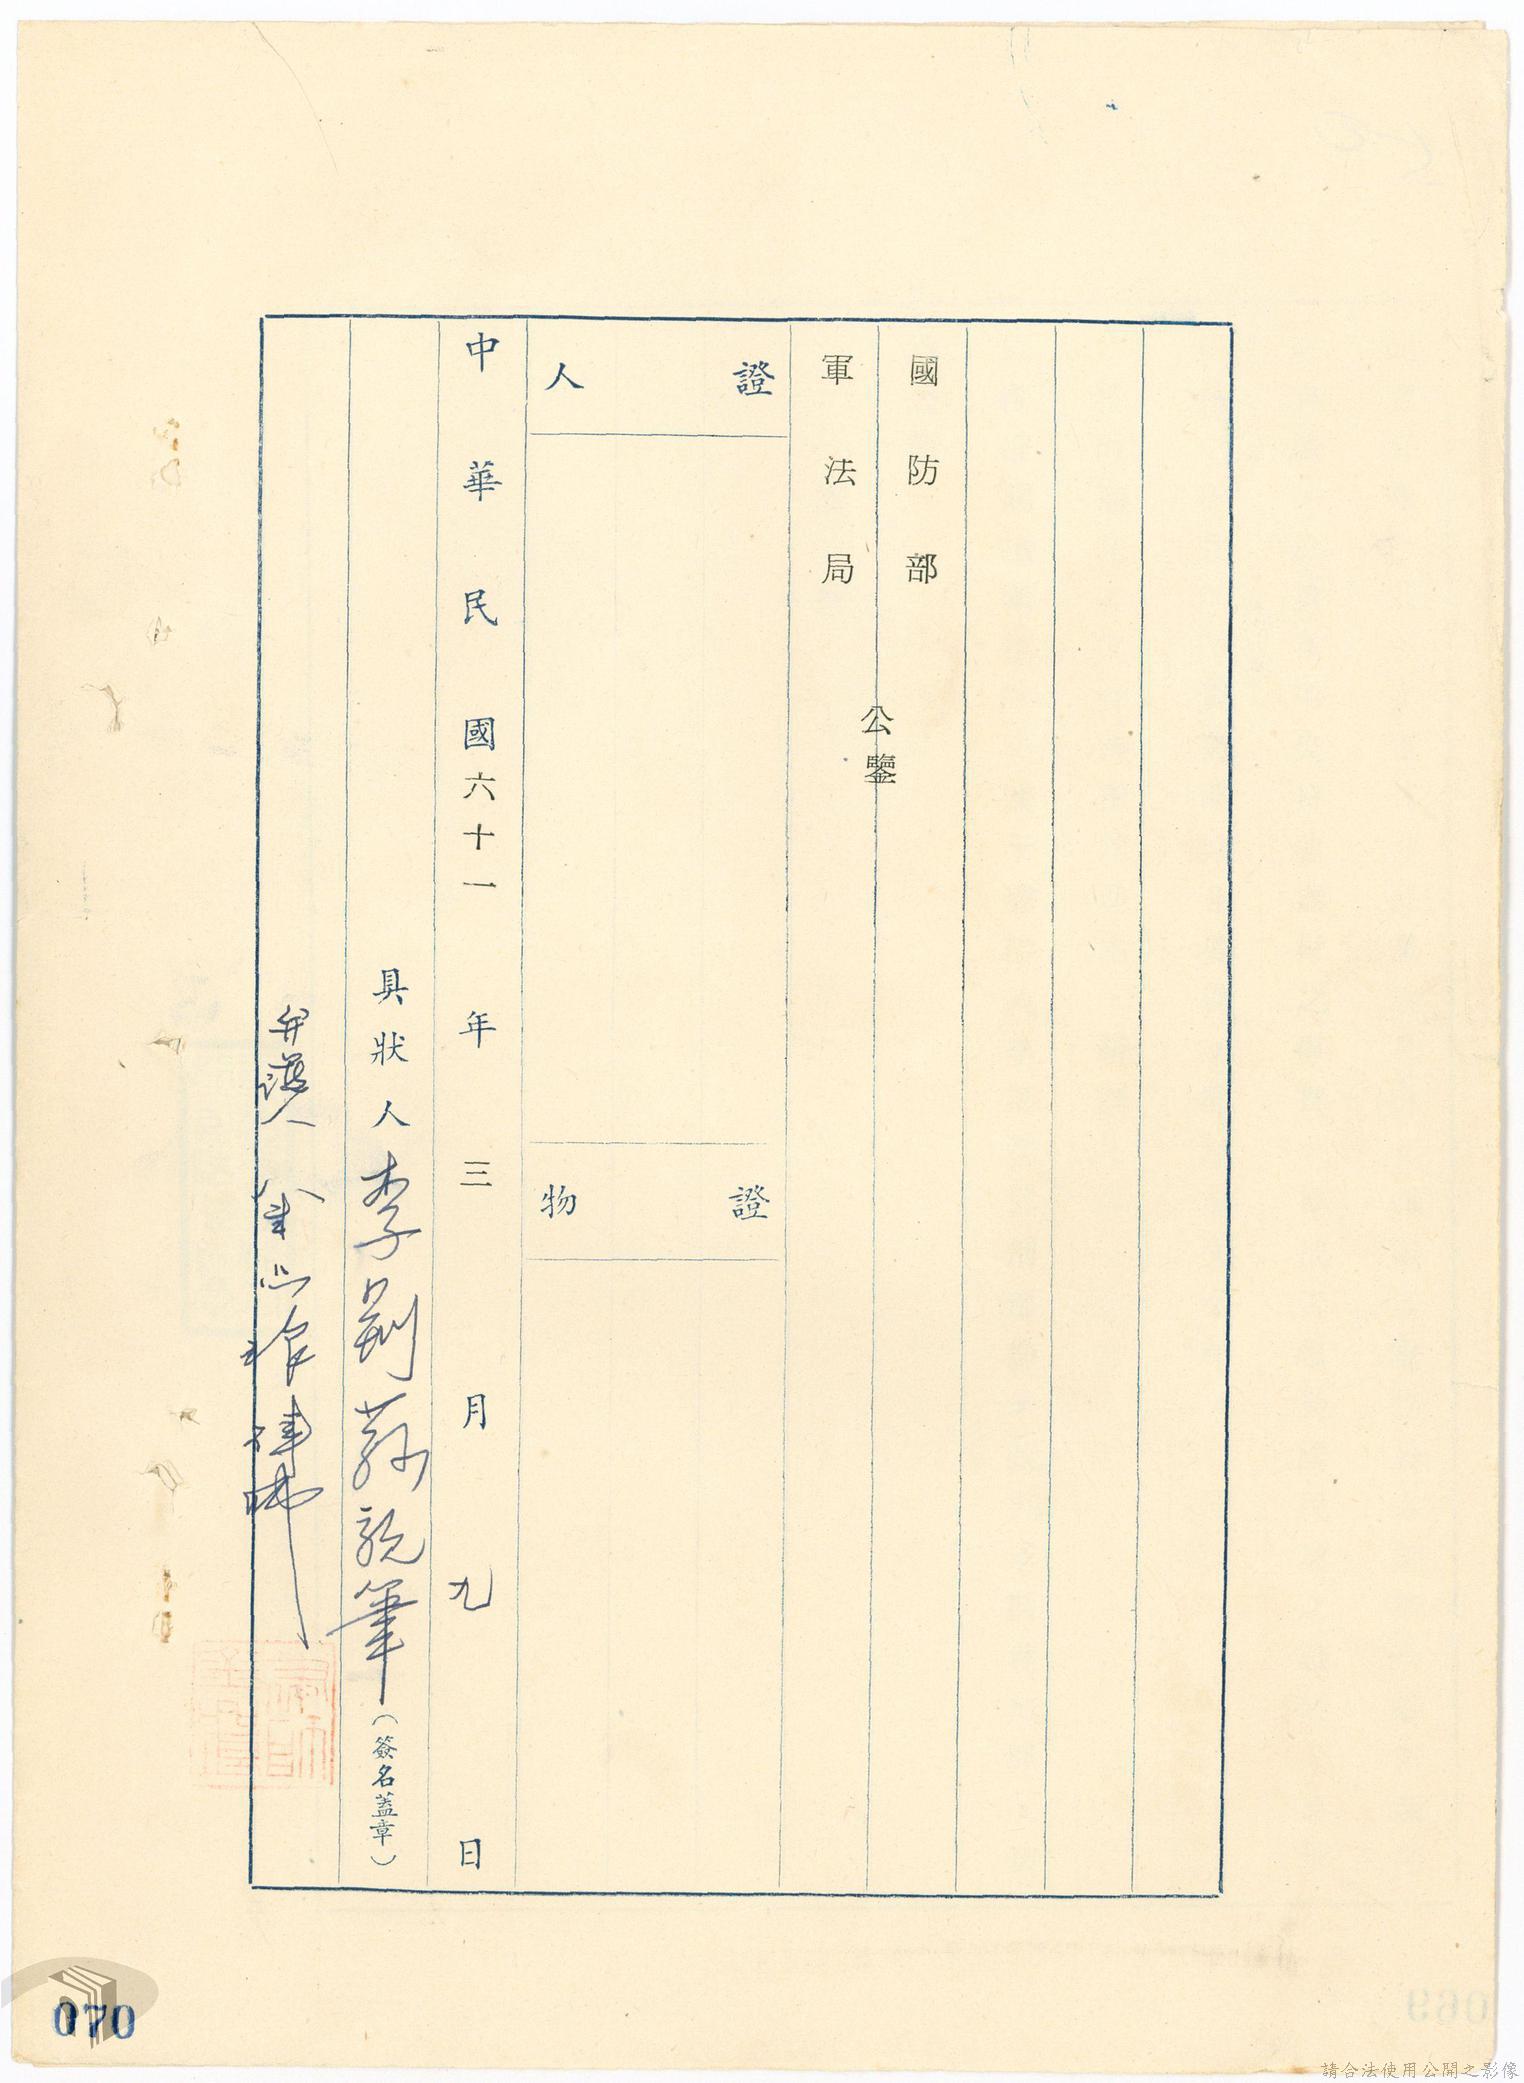 國防部
軍法局
公鑒
證人
證物
中華民國六十一年三月九日
具狀人李荊蓀親筆(簽名蓋章)
弁護人
律師
070
請合法使用公開之影像